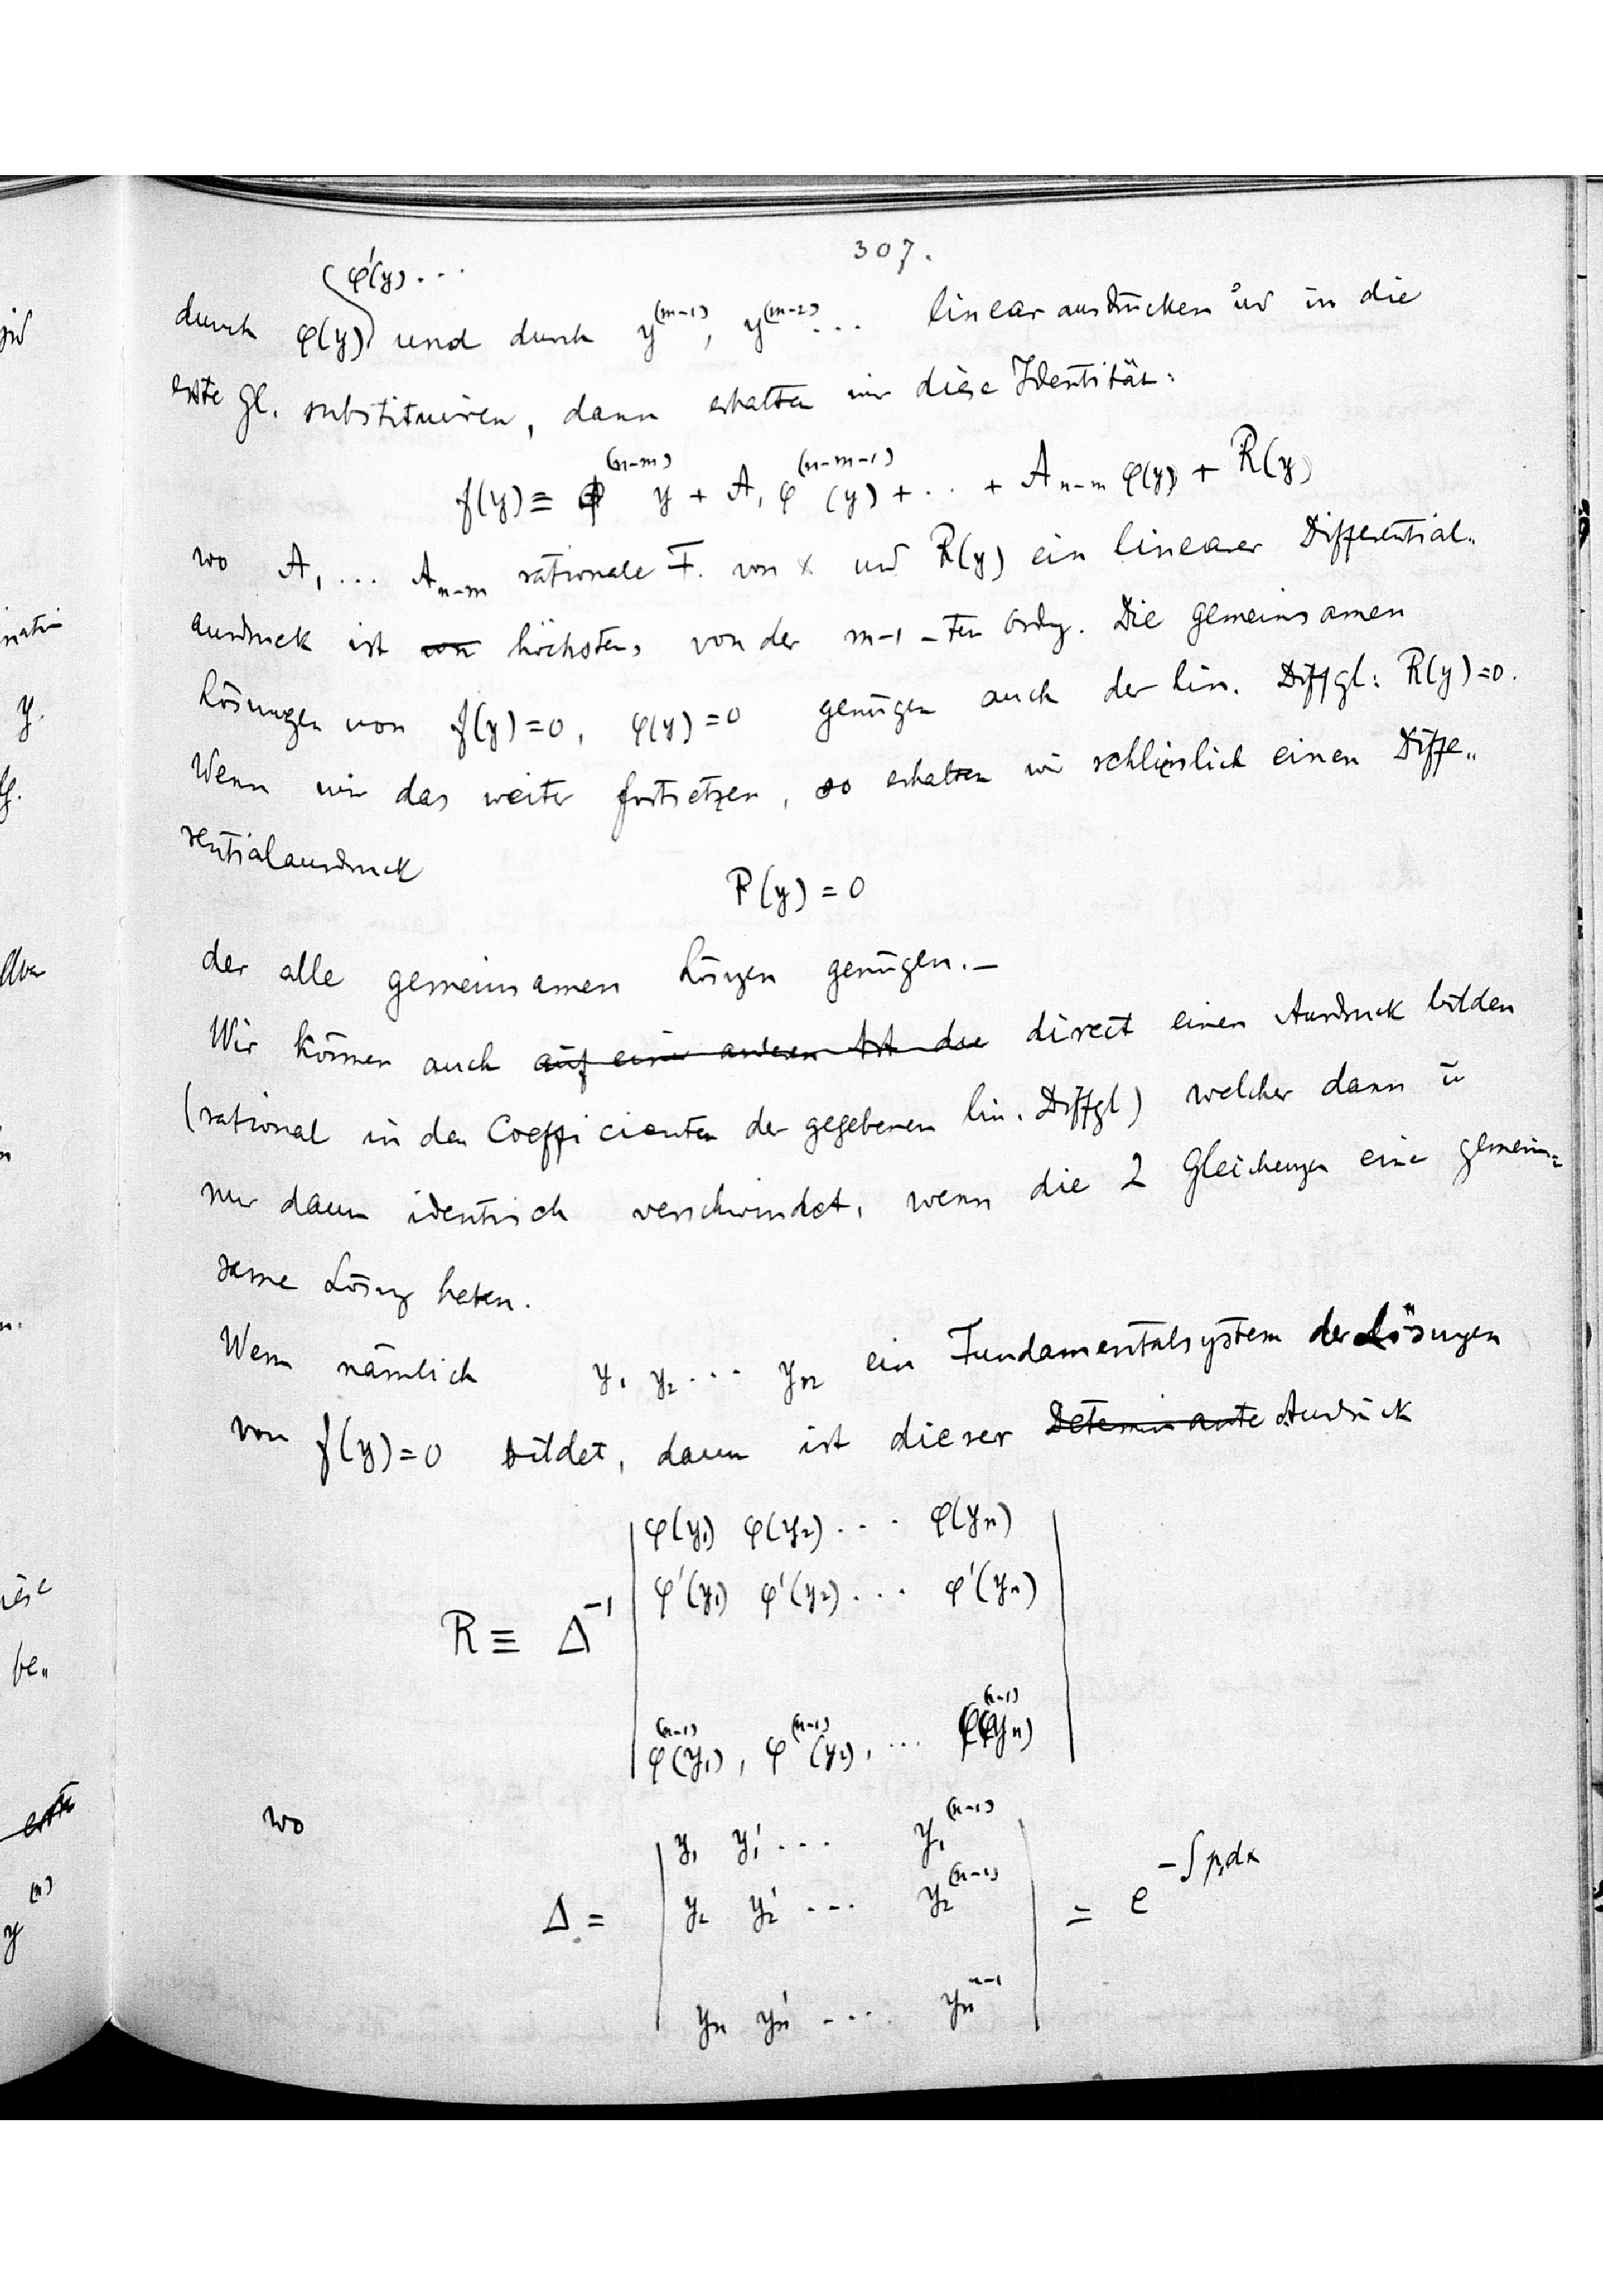 307.
φ'(y) . . .
durch φ(y) und durch y^(m-1), y^(m-2) . . . linear ausdrücken und in die
erste Gl. substituiren, dann erhalten wir diese Identität:
f(y) ≡ φ^(n-m) y + A₁ φ^(n-m-1) (y) + . . . + A_{n-m} φ(y) + R(y)
wo A₁ . . . A_{n-m} rationale F. von x und R(y) ein linearer Differential„
ausdruck ist höchstens von der m-1-ten Ordg. Die gemeinsamen
Lösungen von f(y)=0, φ(y)=0 genügen auch der lin. Diffgl: R(y)=0.
Wenn wir das weiter fortsetzen, so erhalten wir schlieslich einen Diffe„
rentialausdruck
P(y) = 0
der alle gemeinsamen Lösgen genügen. —
Wir können auch auf eine anderen Art die direct einen Ausdruck bilden
(rational in den Coefficienten der gegebenen lin. Diffgl) welcher dann u
nur dann identisch verschwindet, wenn die 2 Gleichungen eine gemein=
same Lösung haben.
Wenn nämlich y₁ y₂ . . . yₙ ein Fundamentalsystem der Lösungen
von f(y)=0 bildet, dann ist dieser Determinante Ausdruck
φ(y₁) φ(y₂) . . . φ(yₙ)
φ'(y₁) φ'(y₂) . . . φ'(yₙ)
R ≡ Δ^-1
φ^(n-1)(y₁), φ^(n-1)(y₂), . . . φ^(n-1)(yₙ)
wo
y₁ y₁' . . . y₁^(n-1)
Δ = y₂ y₂' . . . y₂^(n-1) = e^{-∫p₁dx}
yₙ yₙ' . . . . yₙ^n-1